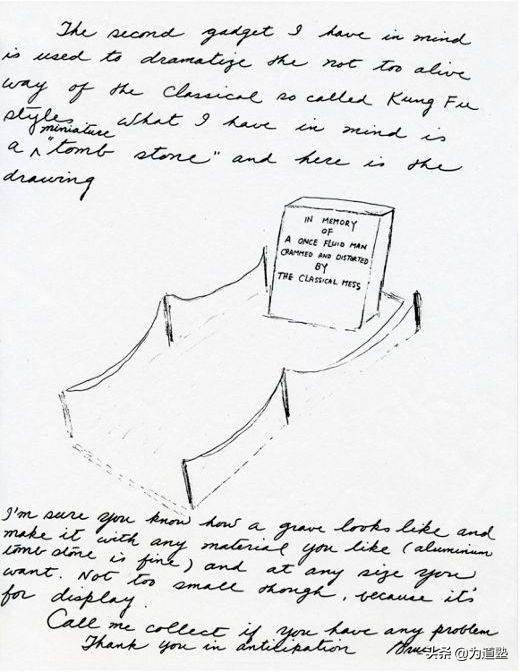 The second gadget I have in mind
is used to dramatize the not too alive
way of the Classical so called Kung Fu
styles. What I have in mind is
a miniature "tomb stone" and here is the
drawing
IN MEMORY
OF
A ONCE FLUID MAN
CRAMMED AND DISTORTED
BY
THE CLASSICAL MESS
I'm sure you know how a grave looks like and
make it with any material you like (aluminium
tomb stone is fine) and at any size you
want. Not too small though, because it's
for display.
Call me collect if you have any problem
Thank you in anticipation
Bruce
头条 @为道塾